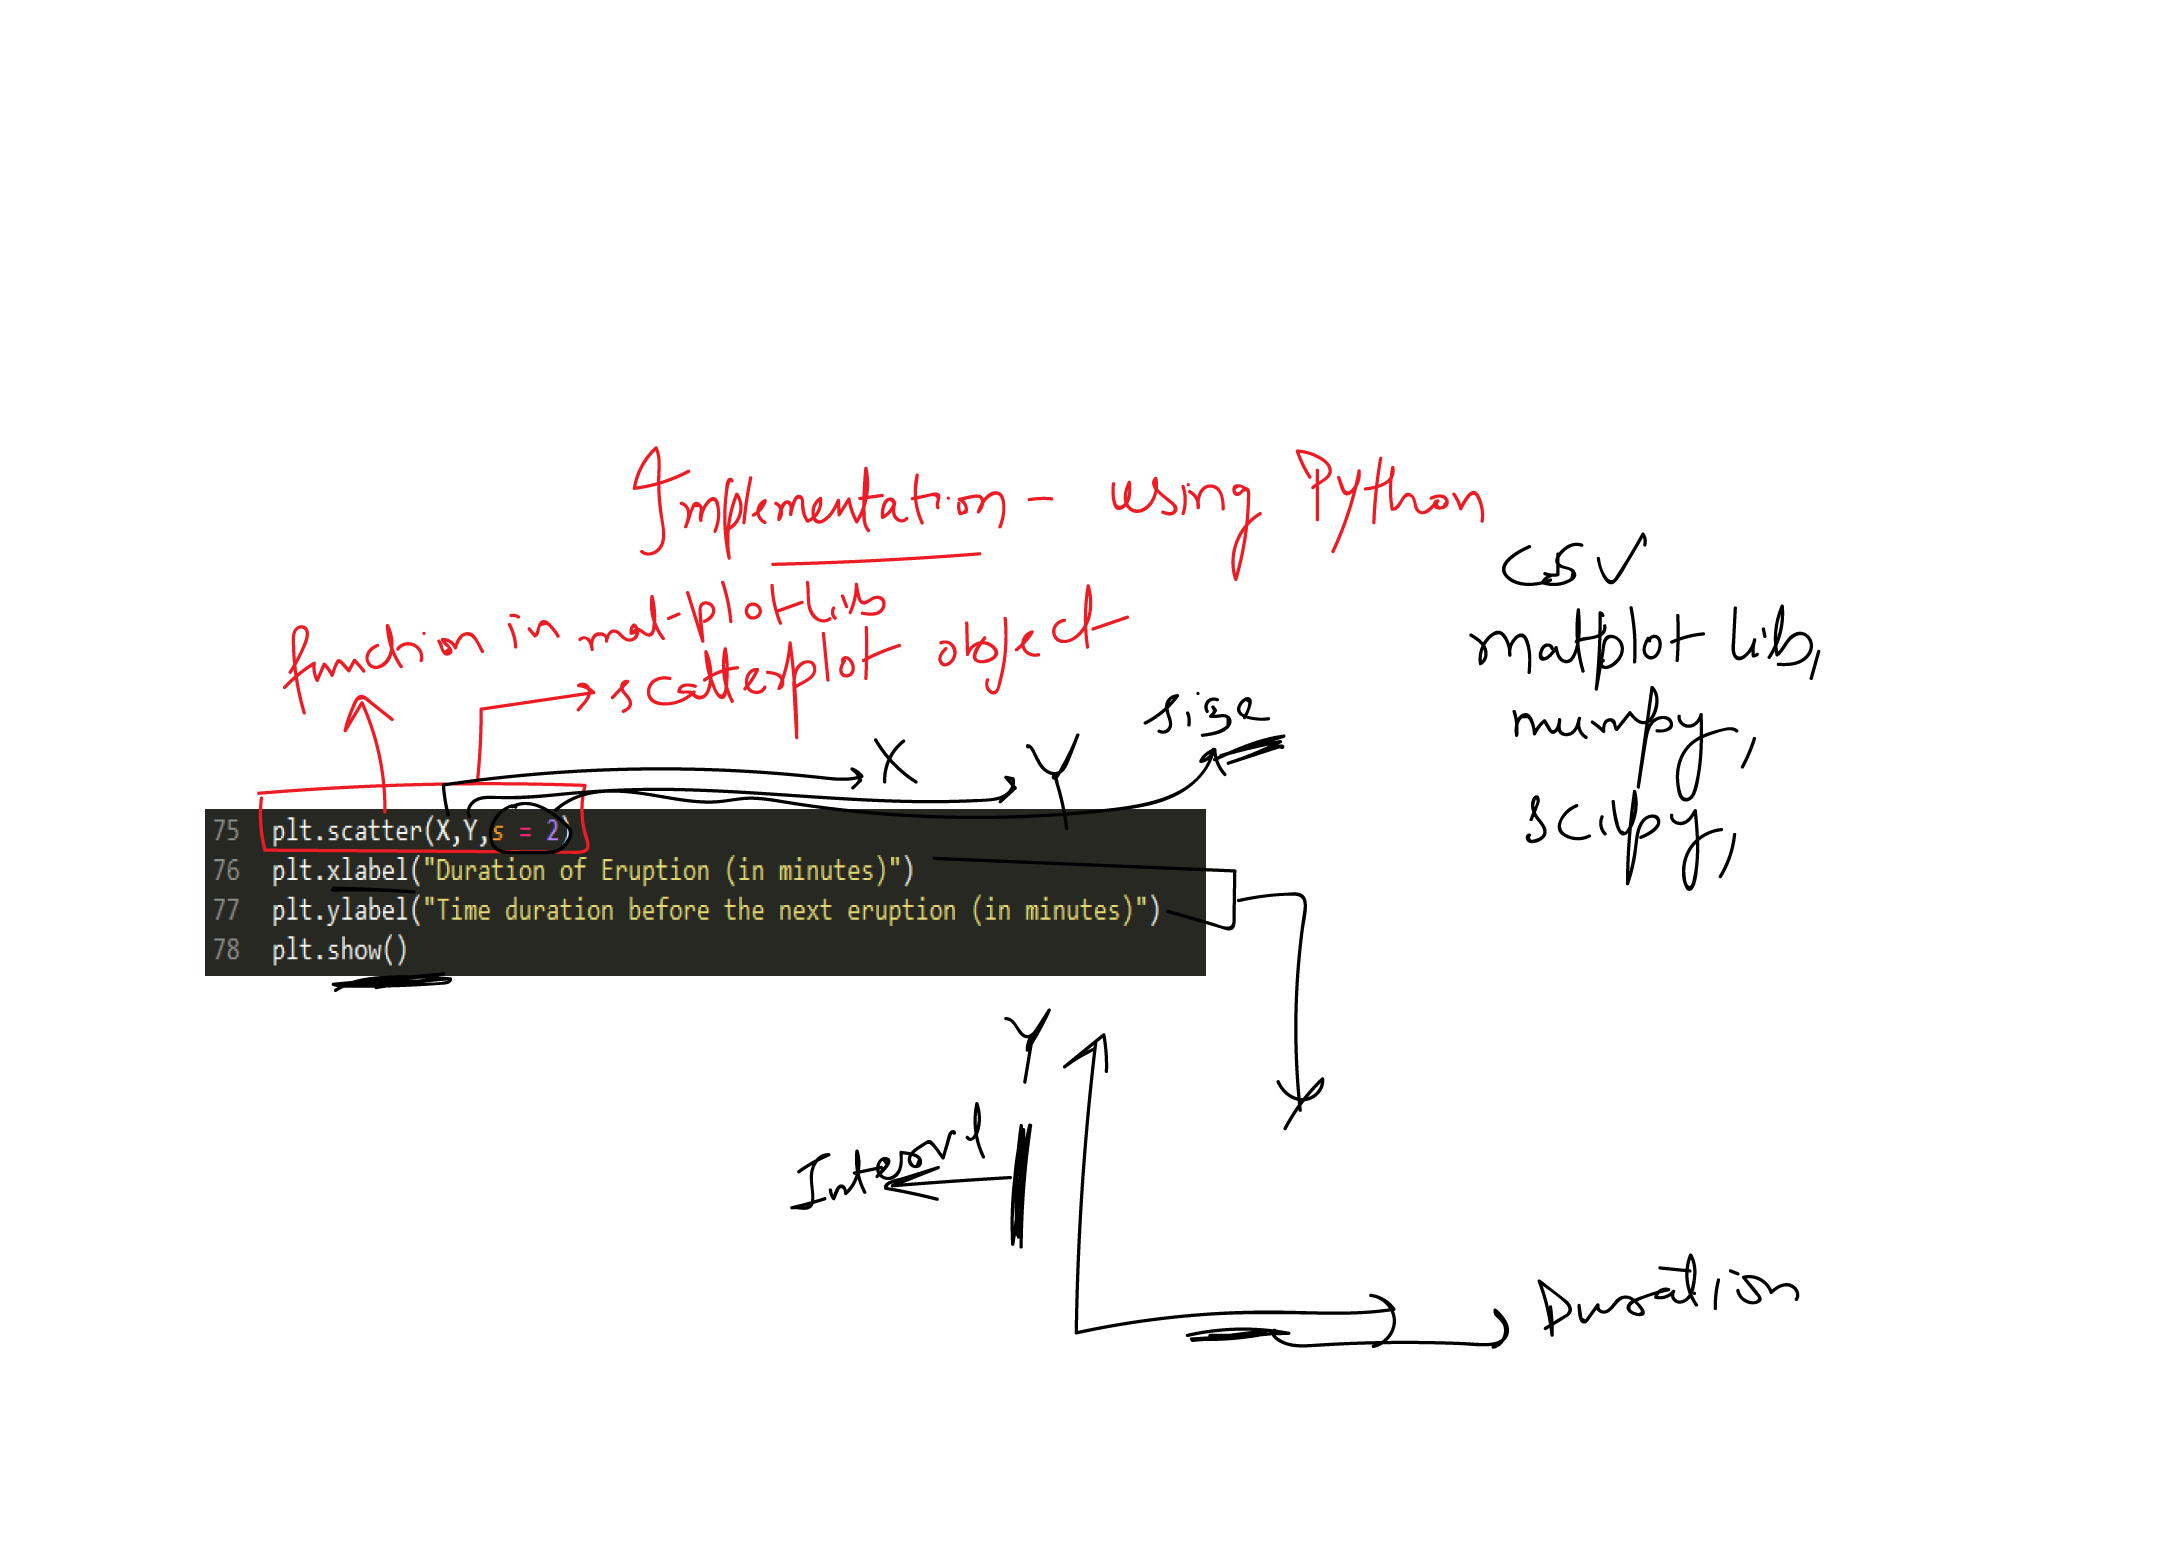 Implementation - using Python
CSV
matplot lib,
numpy,
scipy,
function in mat-plotlib
scatterplot object
size
X
Y
75 plt.scatter(X,Y,s = 2)
76 plt.xlabel("Duration of Eruption (in minutes)")
77 plt.ylabel("Time duration before the next eruption (in minutes)")
78 plt.show()
Y
Interval
Duration